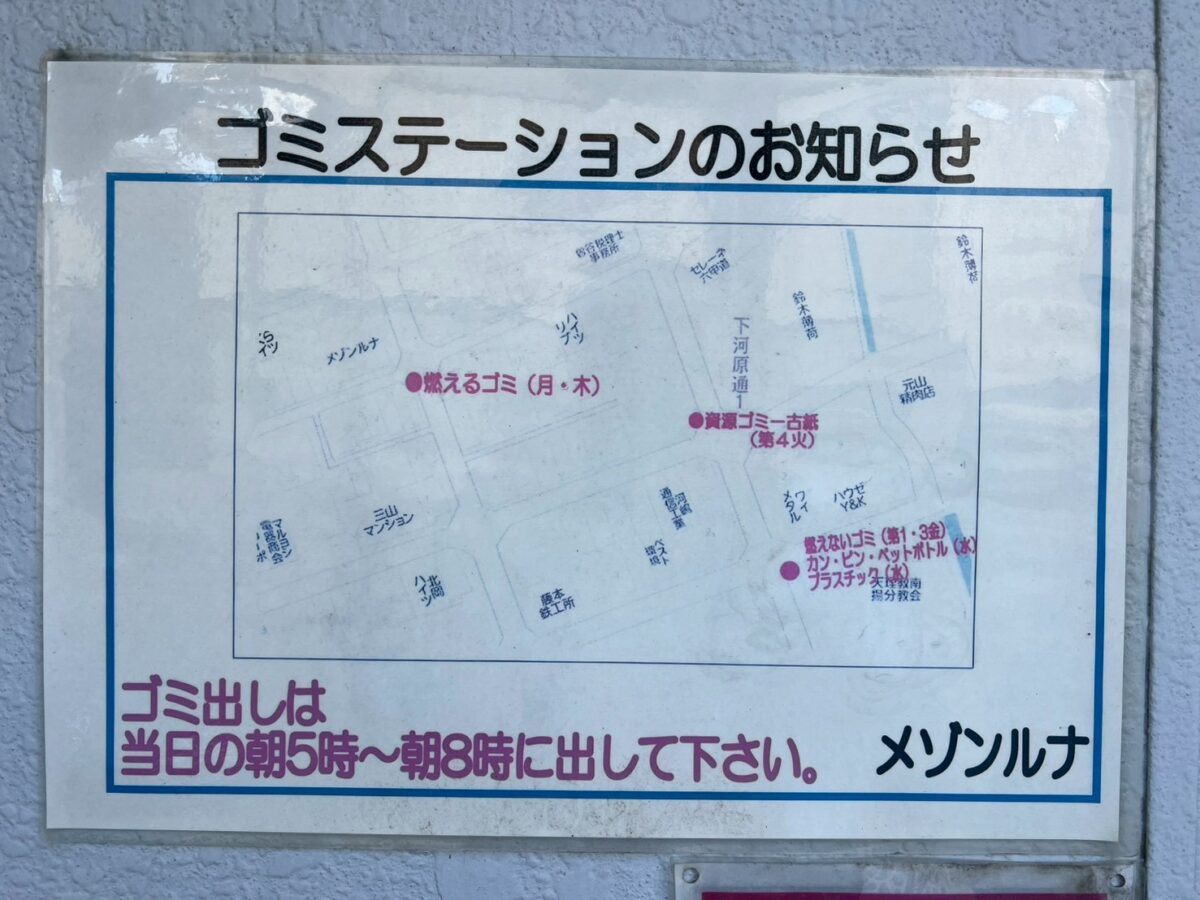 ゴミステーションのお知らせ
税理士
事務所
セレーネ
六甲道
鈴木薄荷
鈴木薄荷
イツ
メゾンルナ
ハイツ
リブ
下河原通1
●燃えるゴミ（月・木）
元山
精肉店
●資源ゴミー古紙
（第4火）
三山
マンション
マルヨシ
電器商会
北岡
ハイツ
河嶋
通信工業
ベスト
環境
藤本
鉄工所
ワイ
メタル
ハウゼ
Y&K
燃えないゴミ（第1・3金）
●カン・ビン・ペットボトル（水）
プラスチック（水）
天理教南
摂分教会
ゴミ出しは
当日の朝5時～朝8時に出して下さい。
メゾンルナ